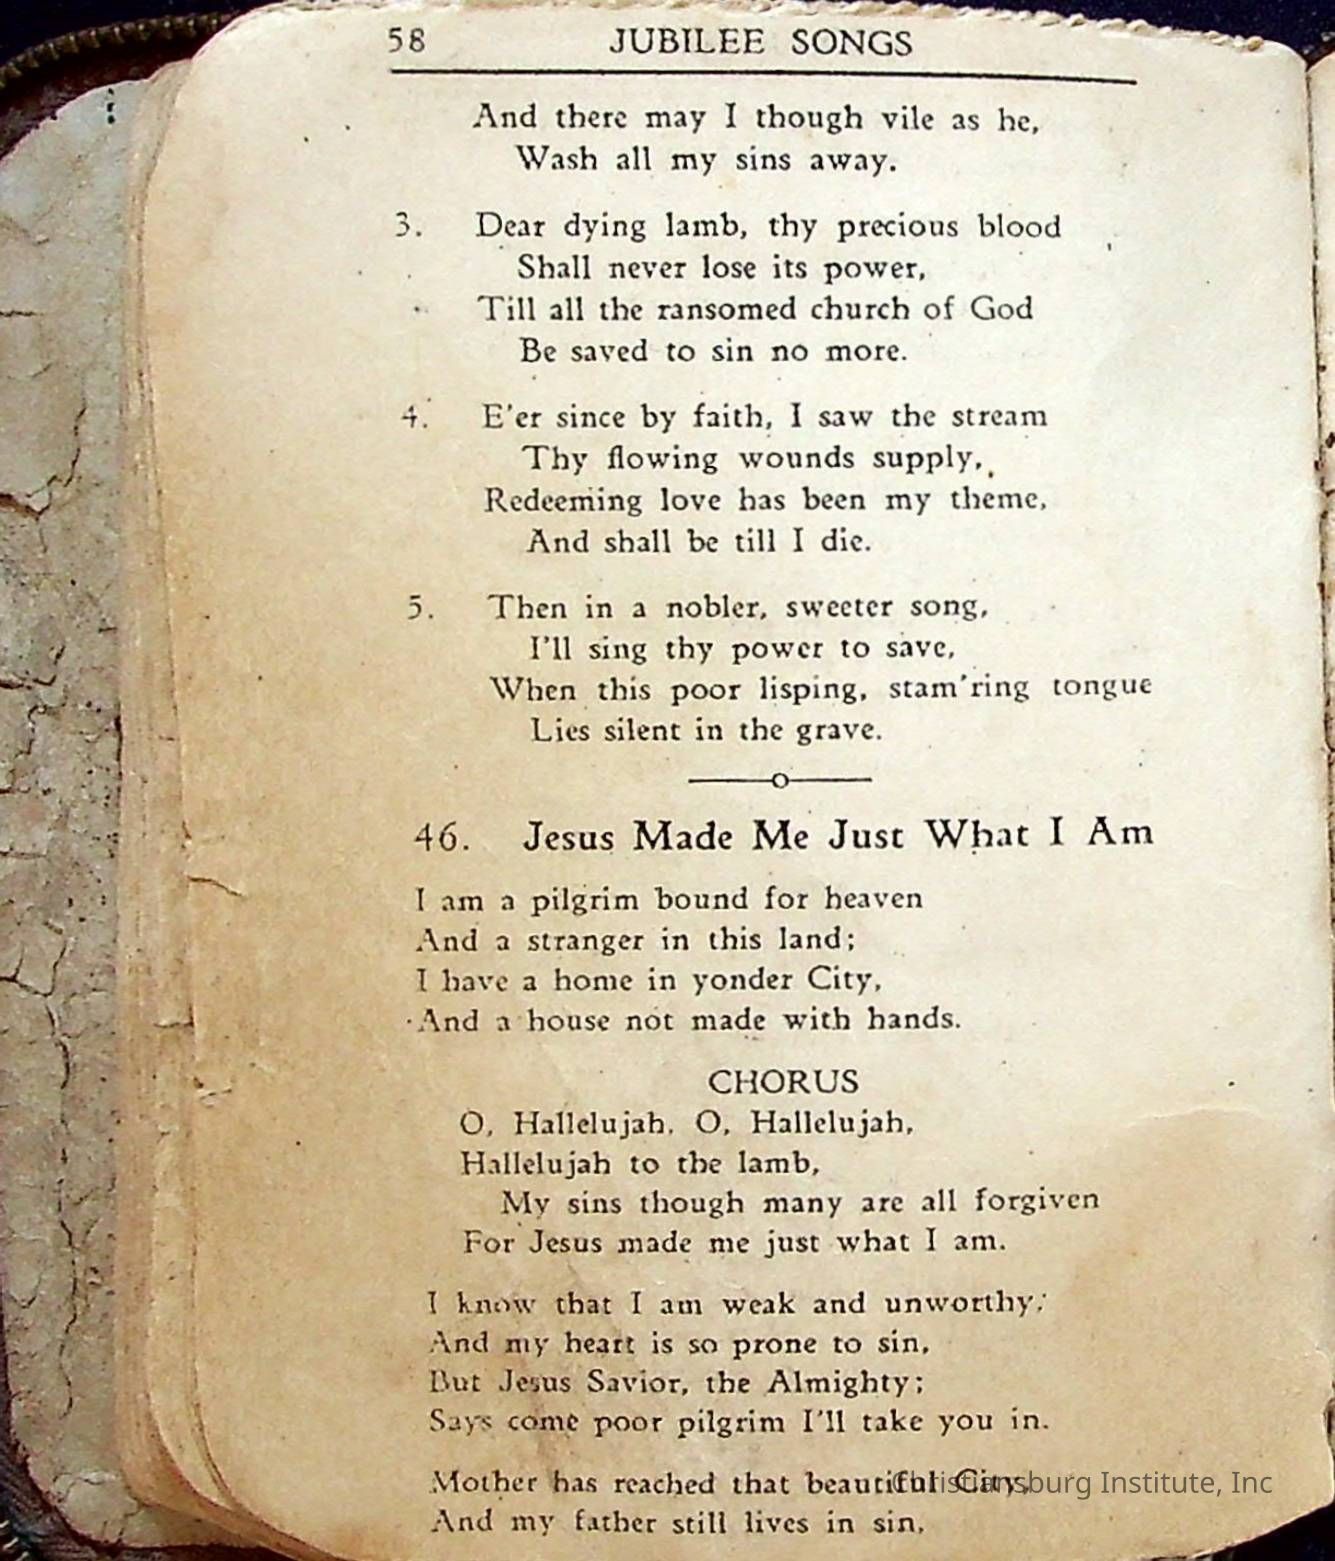 58 JUBILEE SONGS
And there may I though vile as he,
Wash all my sins away.
3. Dear dying lamb, thy precious blood
Shall never lose its power,
Till all the ransomed church of God
Be saved to sin no more.
4. E'er since by faith, I saw the stream
Thy flowing wounds supply,
Redeeming love has been my theme,
And shall be till I die.
5. Then in a nobler, sweeter song,
I'll sing thy power to save,
When this poor lisping, stam'ring tongue
Lies silent in the grave.
46. Jesus Made Me Just What I Am
I am a pilgrim bound for heaven
And a stranger in this land;
I have a home in yonder City,
And a house not made with hands.
CHORUS
O, Hallelujah, O, Hallelujah,
Hallelujah to the lamb,
My sins though many are all forgiven
For Jesus made me just what I am.
I know that I am weak and unworthy;
And my heart is so prone to sin,
But Jesus Savior, the Almighty;
Says come poor pilgrim I'll take you in.
Mother has reached that beautiful City,
Christiansburg Institute, Inc
And my father still lives in sin,